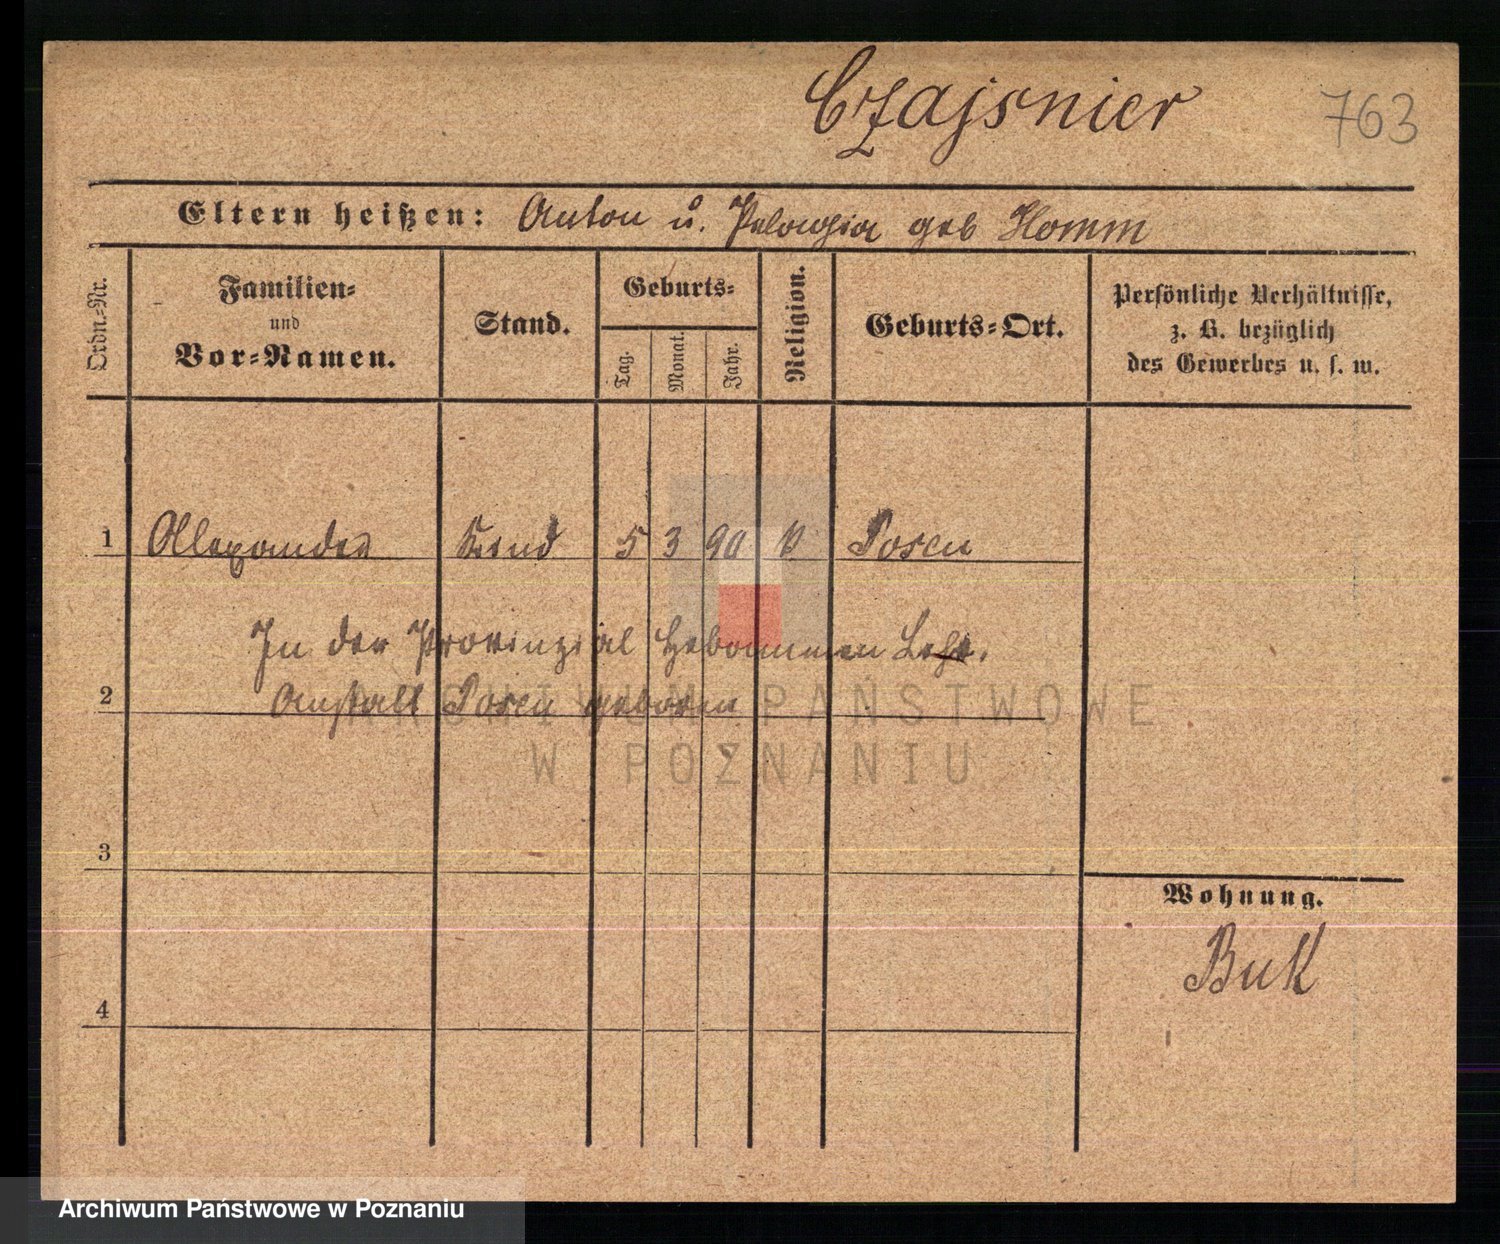 Czajsnier 763
Eltern heißen: Anton u. Pelagia geb Homm
Ordn.-Nr.
Familien-
und
Vor-Namen.
Stand.
Geburts-
Tag.
Monat.
Jahr.
Religion.
Geburts-Ort.
Persönliche Verhältnisse,
z. B. bezüglich
des Gewerbes u. s. w.
1 Alexander Kind 5 3 90 Posen
In der Provinzial Hebammen Lehr.
2 Anstalt Posen geboren
ARCHIWUM PAŃSTWOWE
W POZNANIU
3
Wohnung.
Buk
4
Archiwum Państwowe w Poznaniu